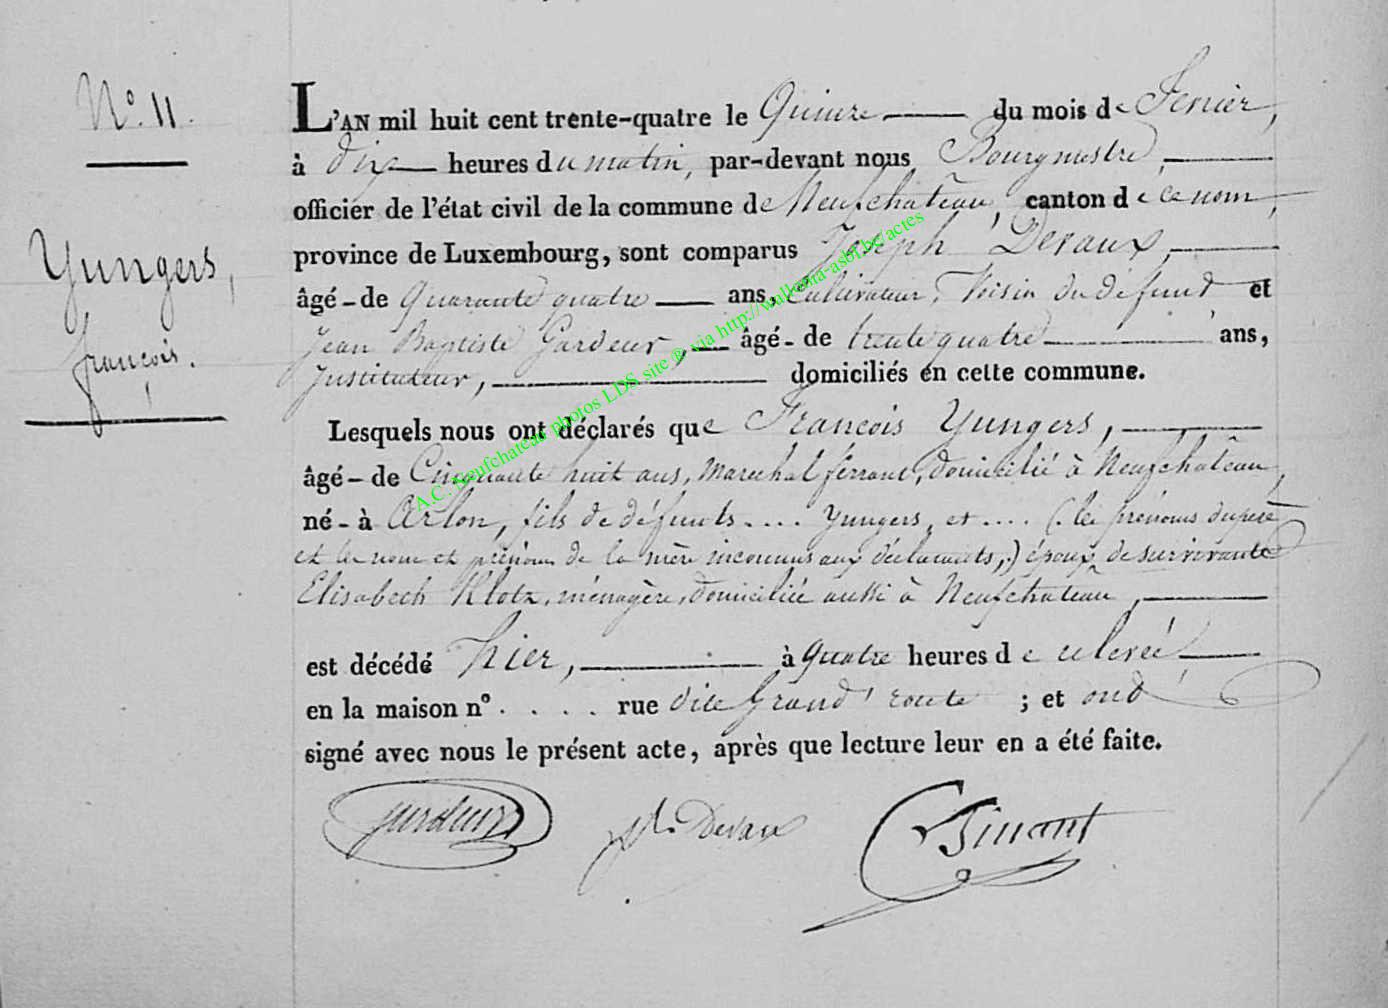 N.° 11.
Yungers,
françois.
L'AN mil huit cent trente-quatre le Quinze du mois de Fevrier,
à dix heures du matin, par-devant nous Bourgmestre
officier de l'état civil de la commune de Neufchateau, canton de ce nom,
province de Luxembourg, sont comparus Joseph Devaux,
âgé-de Quarante quatre ans, Cultivateur, Voisin du défunt et
Jean Baptiste Gardeur, âgé-de trente quatre ans,
Instituteur, domiciliés en cette commune.
Lesquels nous ont déclarés que François Yungers,
âgé-de Cinquante huit ans, marechal ferrant, domicilié à Neufchâteau,
né-à Arlon, fils de défunts .... Yungers, et .... (les prénoms du père
et les nom et prénom de la mère inconnus aux déclarants,) époux de survivante
Elisabeth Klotz, ménagère, domiciliée aussi à Neufchateau,
est décédé hier, à quatre heures de relevée
en la maison n° . . . . rue dite Grand' route ; et ont
signé avec nous le présent acte, après que lecture leur en a été faite.
Gardeur Jh. Devaux
A.C. Neufchateau photos LDS, site ® via http://wallonia-asbl.be/actes